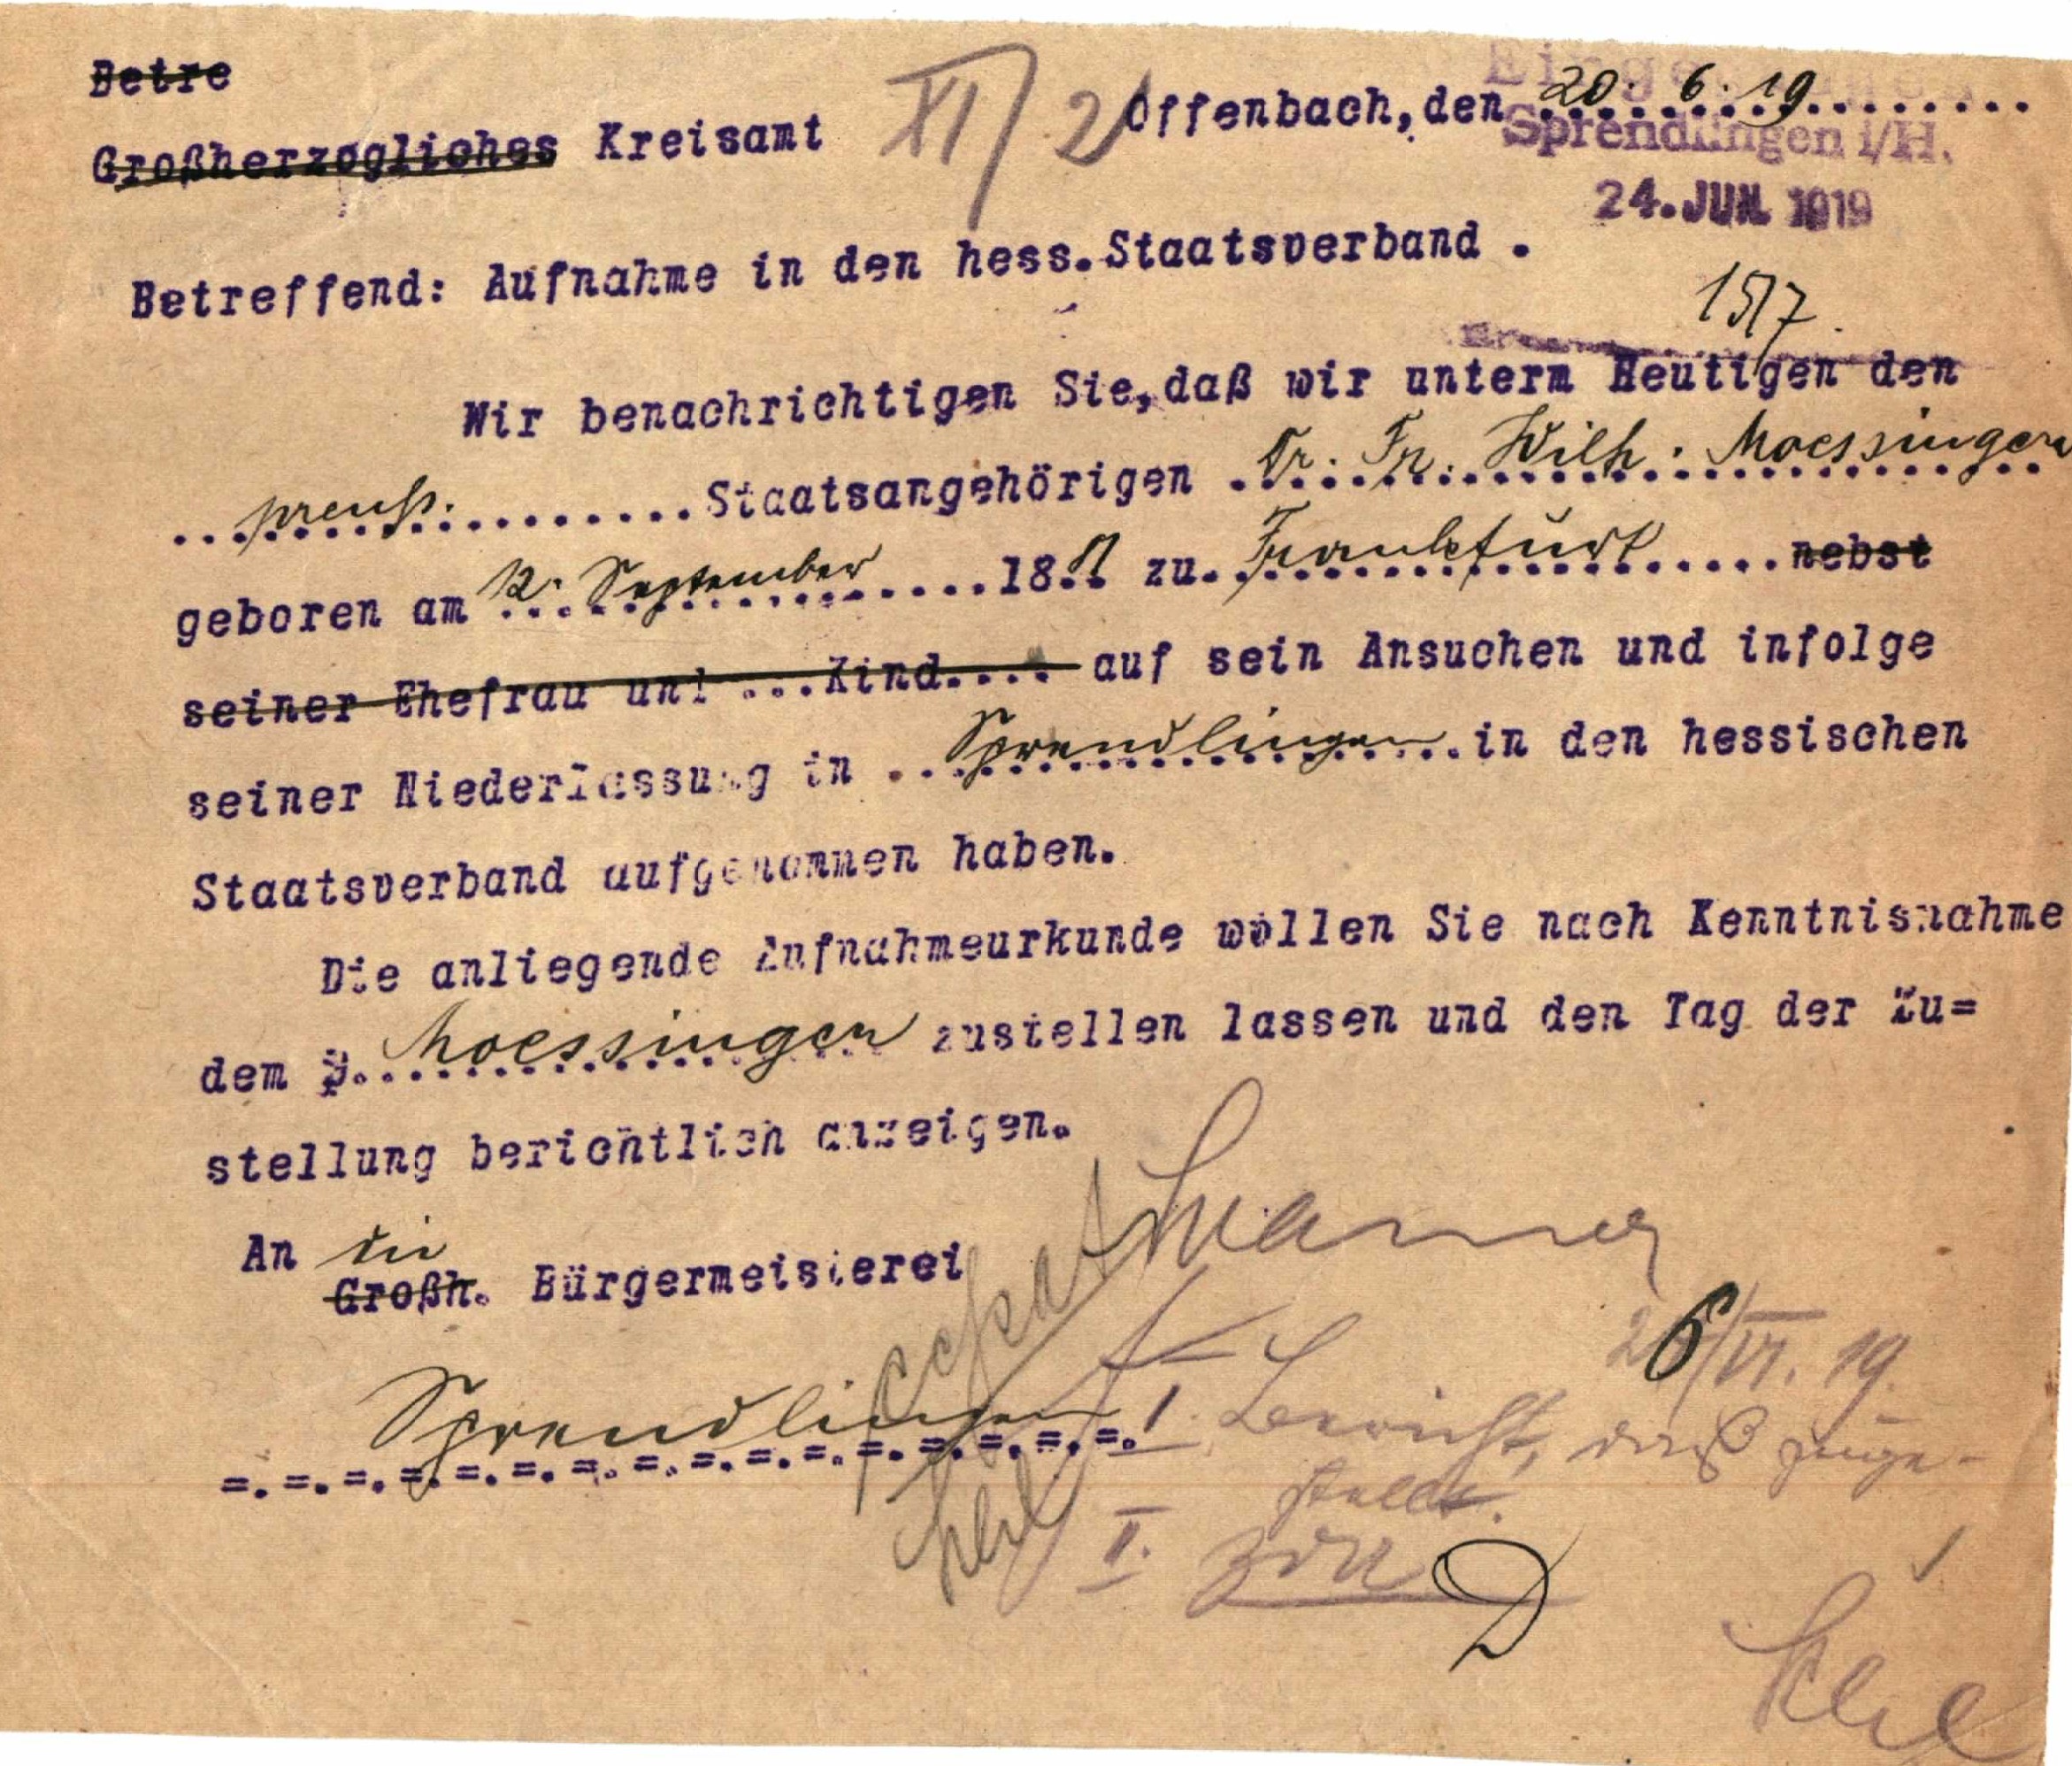 Betre
Großherzogliches Kreisamt XI/2 Offenbach, den 20. 6. 19
Sprendlingen i/H.
24. JUN. 1919
Betreffend: Aufnahme in den hess. Staatsverband .
15/7.
Wir benachrichtigen Sie, daß wir unterm Heutigen den
..preuß.............Staatsangehörigen .Dr. Fr. Wilh. Moessinger
geboren am 12. September .....18.. zu. Frankfurt ..... nebst
seiner Ehefrau und ...Kind.... auf sein Ansuchen und infolge
seiner Niederlassung in ..Sprendlingen..in den hessischen
Staatsverband aufgenommen haben.
Die anliegende Aufnahmeurkunde wollen Sie nach Kenntnisnahme
dem p. Moessinger zustellen lassen und den Tag der Zu=
stellung berichtlich anzeigen.
An die
Großh. Bürgermeisterei
Sprendlingen
=.=.=.=.=.=.=.=.=.=.=.=.=.=.=.=.
26/VI. 19.
I. Bericht, daß zuge-
stellt.
II. ZdA
D